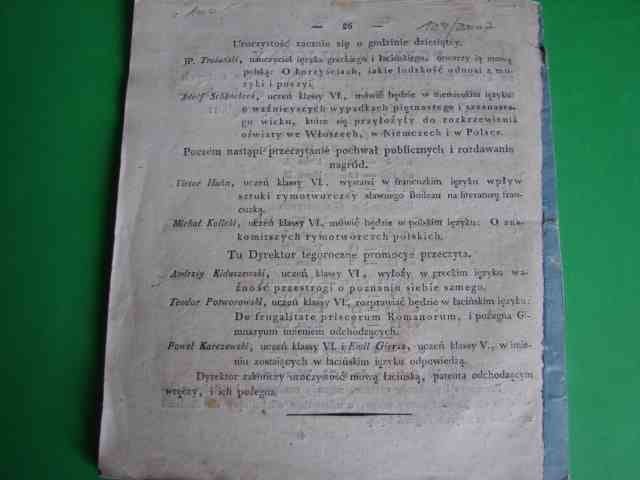 — 26 —
129/2007
Uroczystość zacznie się o godzinie dziesiątéy.
JP. Trojański, nauczyciel ięzyka greckiego i łacińskiego, otworzy ią mową
polską: O korzyściach, iakie ludzkość odnosi z mu-
zyki i poezyi.
Adolf Schönborn, uczeń klassy VI., mówić będzie w niemieckim ięzyku:
o ważnieyszych wypadkach piętnastego i szesnaste-
go wieku, które się przyłożyły do rozkrzewienia
oświaty we Włoszech, w Niemczech i w Polsce.
Poczem nastąpi przeczytanie pochwał publicznych i rozdawanie
nagród.
Victor Huän, uczeń klassy VI., wystawi w francuzkim ięzyku wpływ
sztuki rymotworczéy sławnego Boileau na literaturę fran-
cuzką.
Michał Kolicki, uczeń klassy VI., mówić będzie w polskim ięzyku: O zna-
komitszych rymotworcach polskich.
Tu Dyrektor tegoroczne promocye przeczyta.
Andrzéy Kiduszewski, uczeń klassy VI., wyłoży w greckim ięzyku wa-
żność przestrogi o poznaniu siebie samego.
Teodor Potworowski, uczeń klassy VI., rozprawiać będzie w łacińskim ięzyku:
De frugalitate priscorum Romanorum, i pożegna Gi-
mnazyum imieniem odchodzących.
Paweł Karczewski, uczeń klassy VI. i Emil Gierse, uczeń klassy V., w imie-
niu zostaiących w łacińskim ięzyku odpowiedzą.
Dyrektor zakończy uroczystość mową łacińską, patenta odchodzącym
wręczy, i ich pożegna.